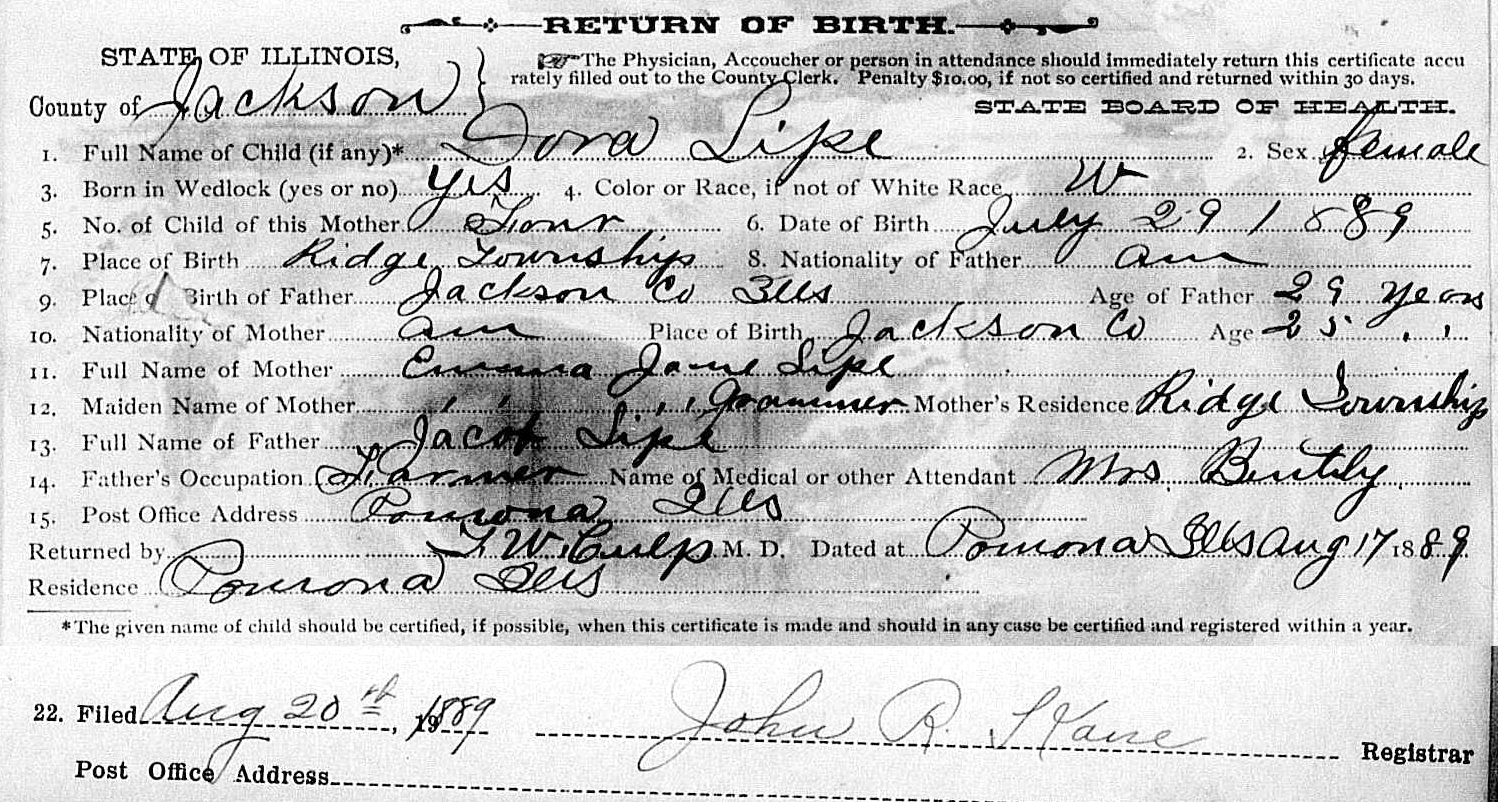 RETURN OF BIRTH.
STATE OF ILLINOIS,
County of Jackson
The Physician, Accoucher or person in attendance should immediately return this certificate accu
rately filled out to the County Clerk. Penalty $10.00, if not so certified and returned within 30 days.
STATE BOARD OF HEALTH.
1. Full Name of Child (if any)* Dora Lipe 2. Sex female
3. Born in Wedlock (yes or no) yes 4. Color or Race, if not of White Race W
5. No. of Child of this Mother Four 6. Date of Birth July 29 1889
7. Place of Birth Ridge Township 8. Nationality of Father Am
9. Place of Birth of Father Jackson Co Ills Age of Father 29 years
10. Nationality of Mother Am Place of Birth Jackson Co Age 25 , ,
11. Full Name of Mother Emma Jane Lipe
12. Maiden Name of Mother , , , , Grammer Mother's Residence Ridge Township
13. Full Name of Father Jacob Lipe
14. Father's Occupation Farmer Name of Medical or other Attendant Mrs Bently
15. Post Office Address Pomona Ills
Returned by F. W. Culp M. D. Dated at Pomona Ills Aug 17 1889
Residence Pomona Ills
*The given name of child should be certified, if possible, when this certificate is made and should in any case be certified and registered within a year.
22. Filed Aug 20th, 1889 John R. Kane Registrar
Post Office Address